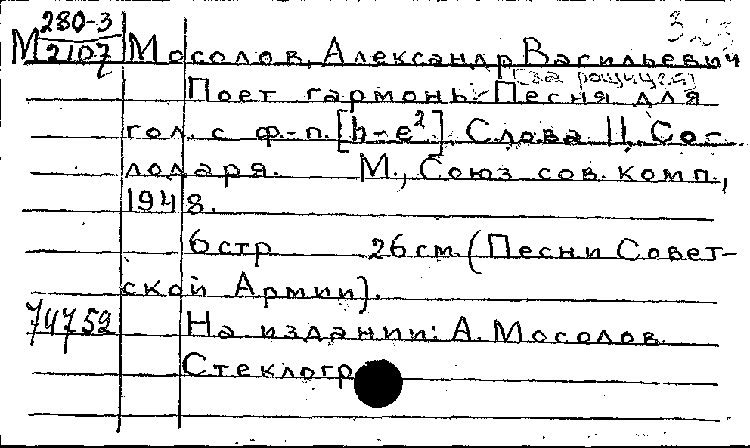 280-3
М 2107 Мосолов, Александр Васильевич
[за рощицей]
Поет гармонь. Песня для
гол. с ф.-п. [h-e²]. Слова П. Сог
лодаря. М., Союз сов. комп.,
1948.
6 стр 26 см. (Песни Совет-
ской Армии).
74752 На издании: А. Мосолов.
Стеклогр